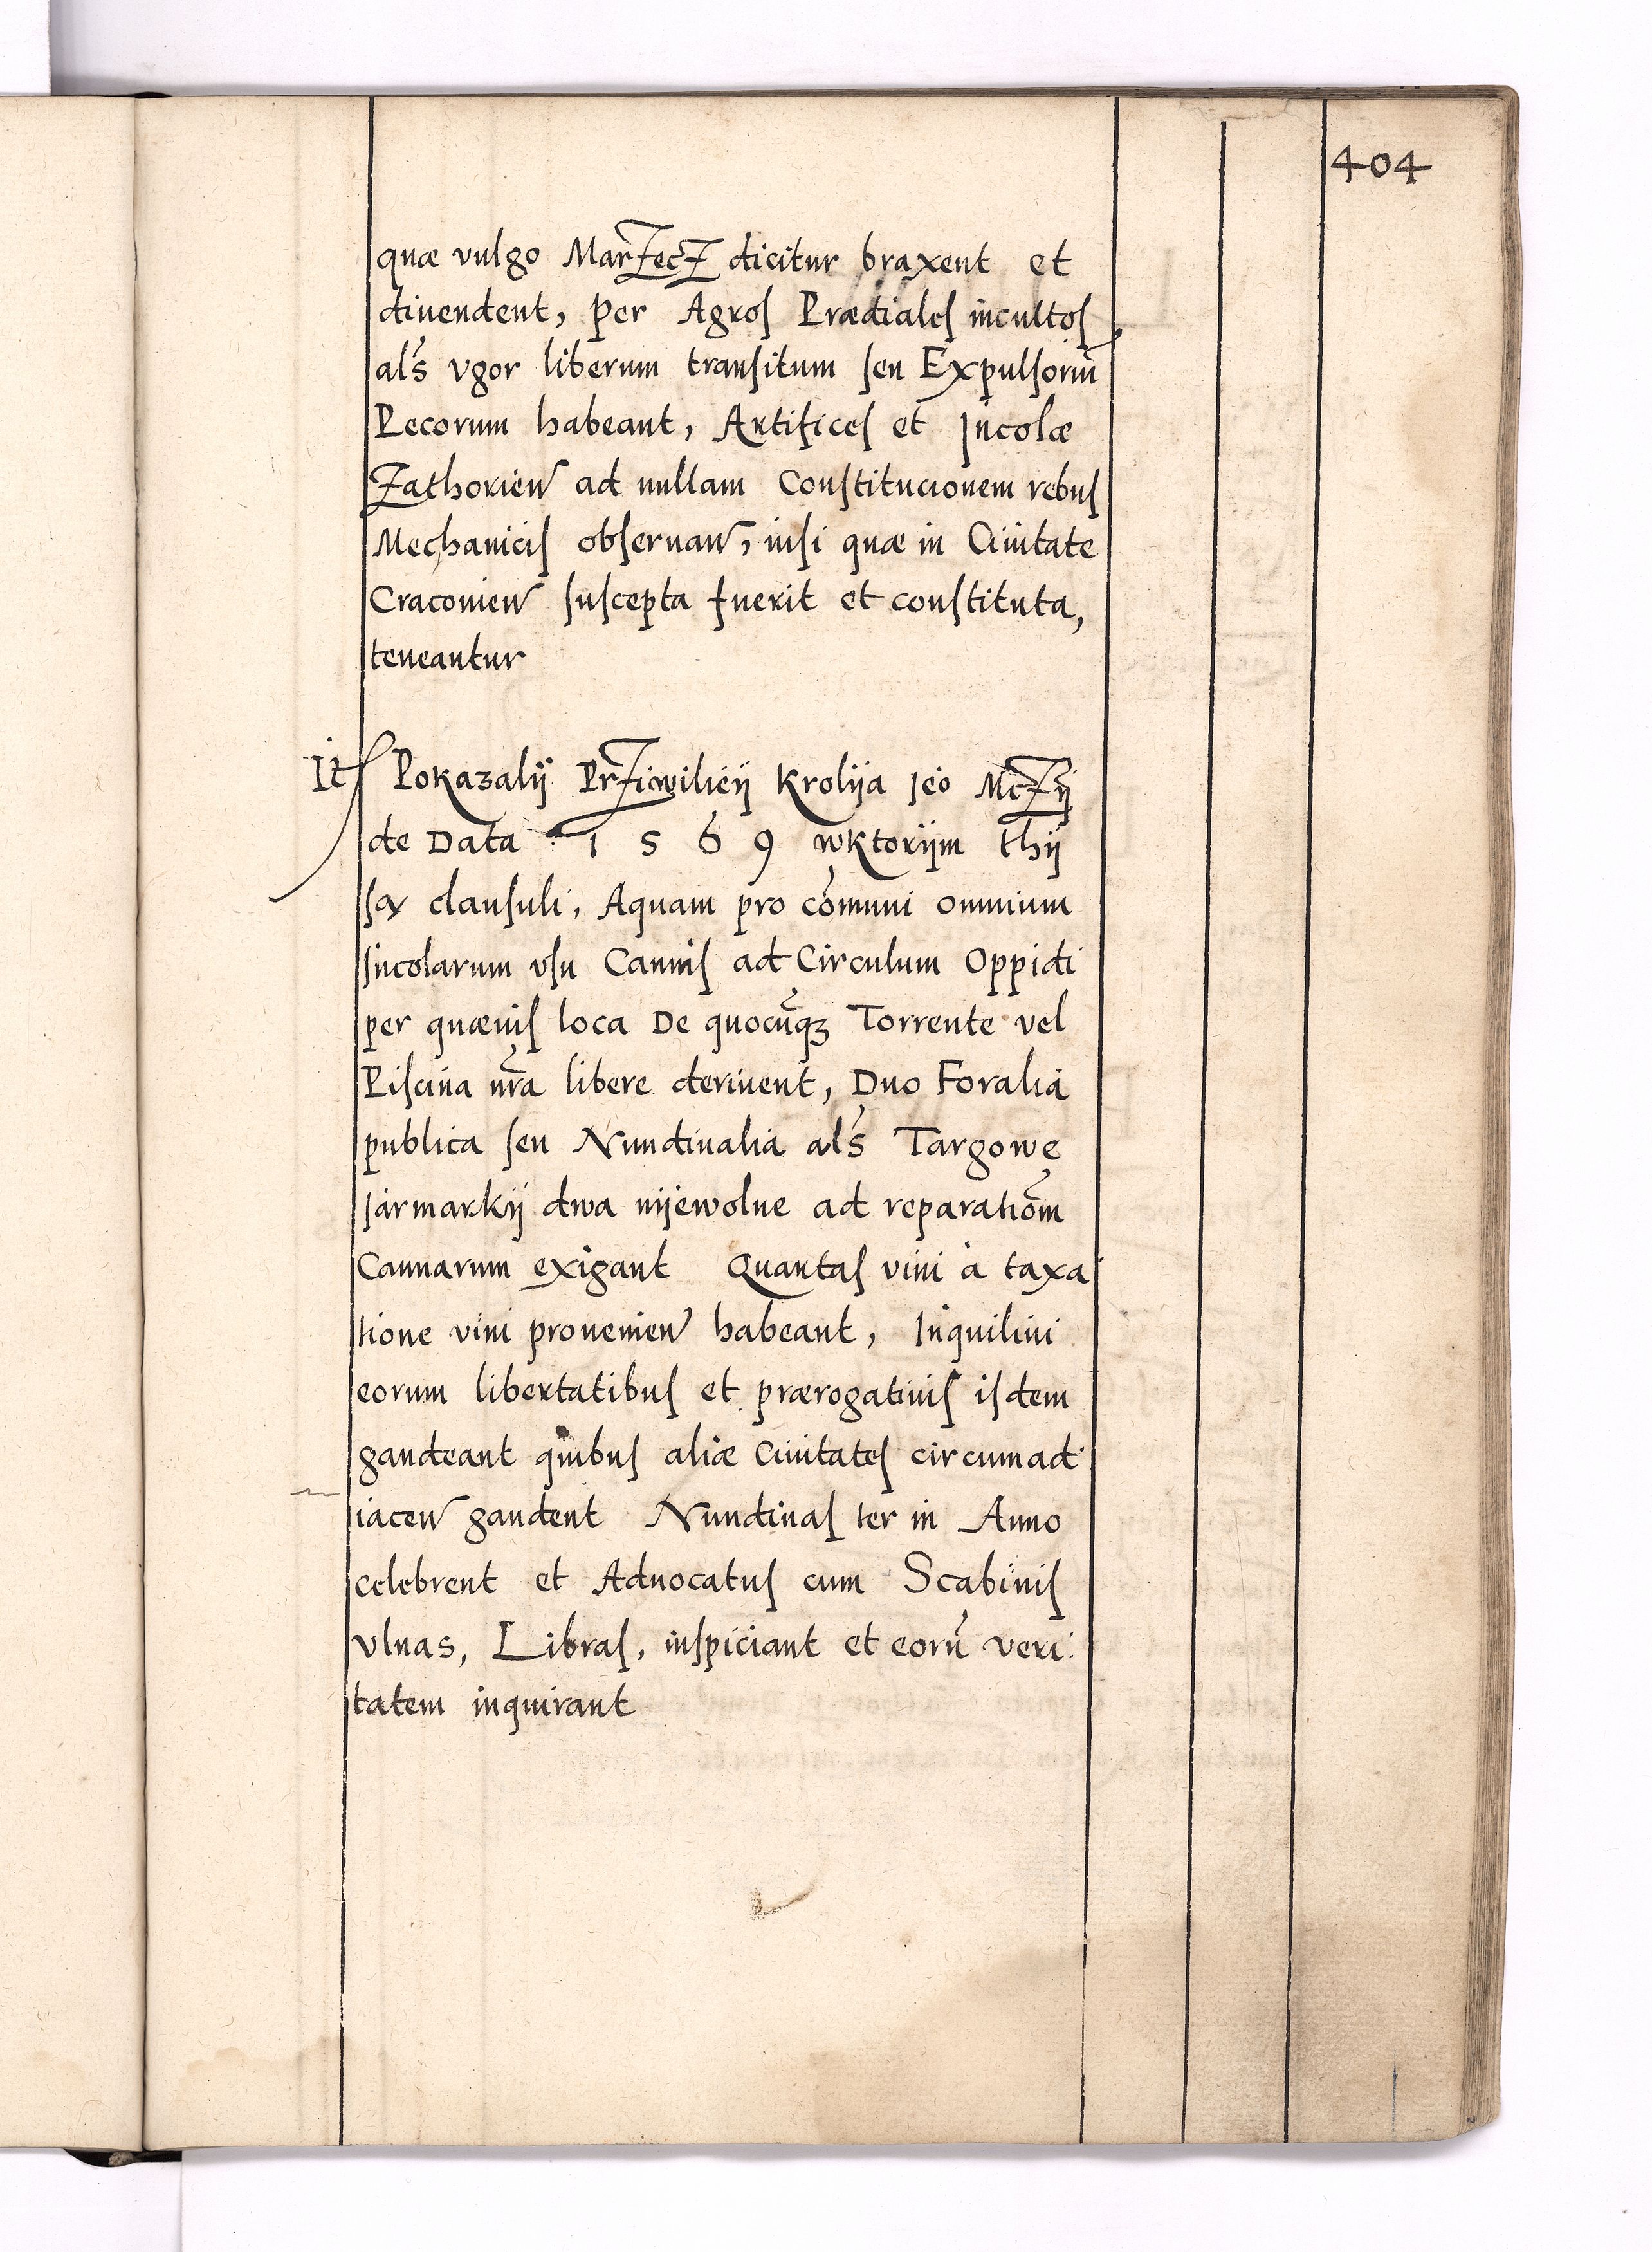 404
quæ vulgo MarZecZ dicitur braxent et
diuendent, per Agros Prædiales incultos,
als vgor liberum transitum seu Expulsoriũ
Pecorum habeant, Artifices et Incolæ
Zathorien ad nullam Constitucionem rebus
Mechanicis obseruan, nisi quæ in Ciuitate
Cracouien suscepta fuerit et constituta,
teneantur
It Pokazalÿ PrZiwilieÿ Krolÿa Jeo McZÿ
de Data 1569 wktorÿm thÿ
są clausuli, Aquam pro cõmuni omnium
Incolarum vsu Cannis ad Circulum Oppidi
per quæuis loca De quocũqz Torrente vel
Piscina nr̃a libere deriuent, Duo Foralia
publica seu Nundinalia als Targowe
Jarmarkÿ dwa nÿewolne ad reparatiõm
Cannarum exigant Quartas vini à taxa
tione vini prouenien habeant, Inquilini
eorum libertatibus et prærogatiuis isdem
gaudeant quibus aliæ Ciuitates circumad
iacen gaudent Nundinas ter in Anno
celebrent et Aduocatus cum Scabinis
vlnas, Libras, inspiciant et eorũ veri:
tatem inquirant